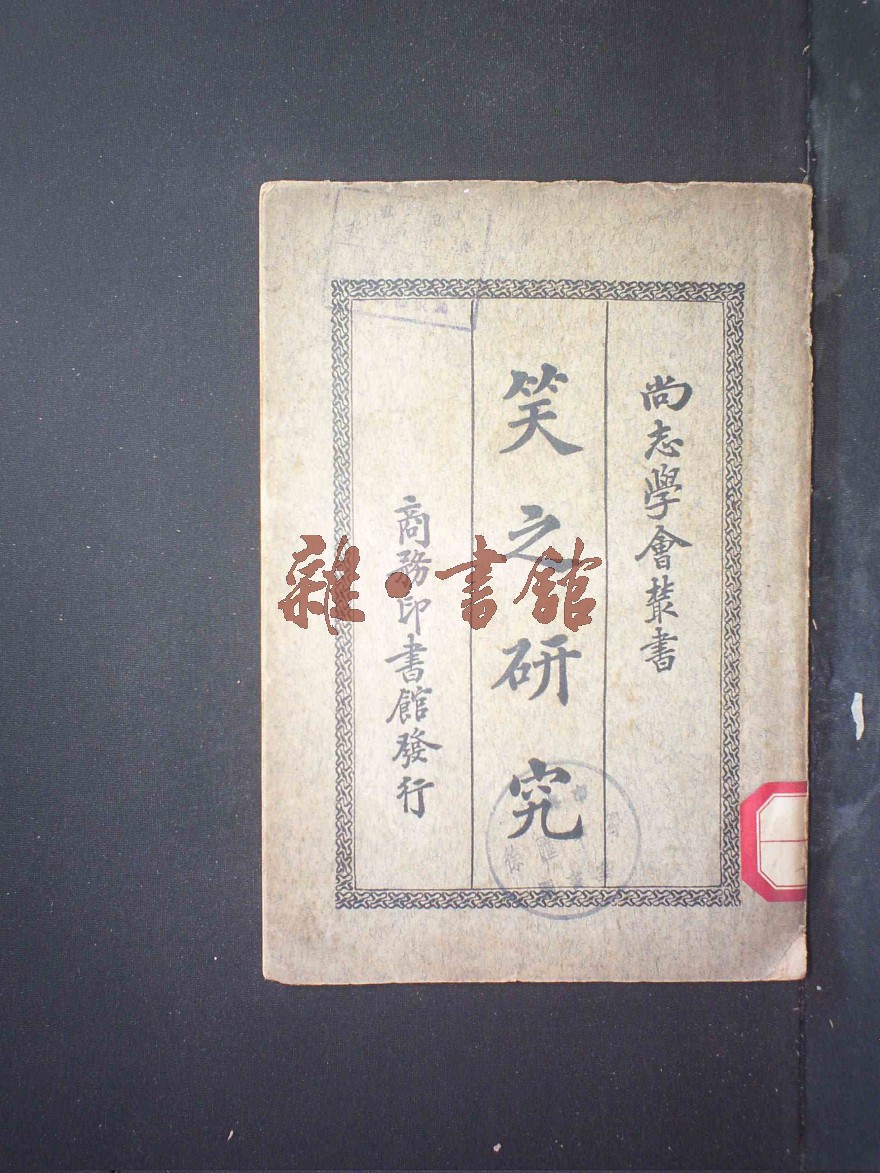 尚志學會叢書
笑之研究
商務印書館發行
雜·書館